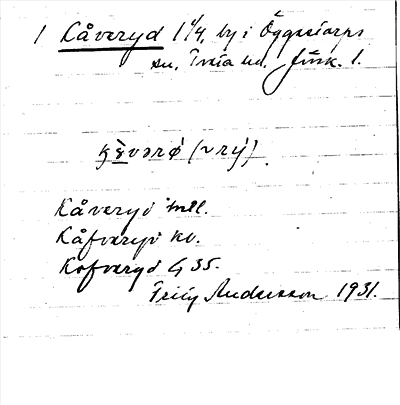 1 Kåveryd 1 1/4, by i Öggestorps
sn, Tveta hd. Jönk. l.
kåvərǿ (~rý)
Kåveryd
Kåfveryd kv.
Kofveryd G 35.
Fritz Andersson 1931.